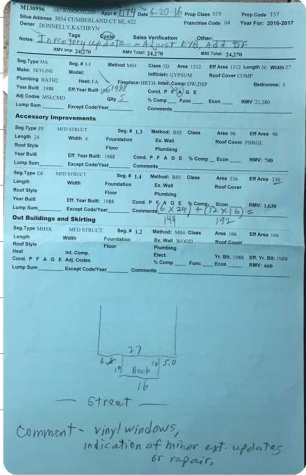 M130996 Appr # 079 Date 6-20-16 Prop Class 019 Prop Code T57
Situs Address 5034 CUMBERLAND CT SE, #22 Franchise Code 04 Year For: 2016-2017
Owner DONNELLY,KATHRYN
Tags Cycle Sales Verification Other
Notes: Inventory Update - Adjust EYB, Add DF
RMV 24,270 MSV Total: 24,270
Seg.Type MA Seg.# 1.1 Method M04 Class 5D Area 1512 Eff Area 1512 Length 56 Width 27
Make: SKYLINE Model: IntFinish: GYPNUM Roof Cover COMP
Plumbing BATH2 Heat: FA Bedrooms: 3
Year Built Eff. Year Built: 1988 Cond. P F A G E
Adj Codes MSLCMD Qty % Comp Func Econ RMV: 21,280
Lump Sum Except Code/Year Comments
Accessory Improvements
Seg.Type PF MFD STRUCT Seg.# 1.3 Method: R05 Class Area 96 Eff Area 96
Length 24 Width 4 Foundation Ex. Wall Roof Cover FBRGL
Roof Style Floor Plumbing
Year Built Eff. Year Built: 1988 Cond. P F A G E % Comp Econ RMV: 700
Lump Sum Except Code/Year Comments
Seg.Type DF MFD STRUCT Seg.# 1.4 Method: R05 Class Area 336 Eff Area 336
Length Width Foundation Ex. Wall Roof Cover
Roof Style Floor Plumbing
Year Built Eff. Year Built: 1988 Cond. P F A G E % Comp Econ RMV: 1,630
Lump Sum Except Code/Year Comments (6 x 24) + (12 x 16) =
144 192
Out Buildings and Skirting
Seg.Type MHSK MFD STRUCT Seg.# 1.2 Method: M04 Class Area 166 Eff Area 166
Length Width Foundation Ex. Wall WOOD Roof Cover
Roof Style Floor Plumbing
Heat Int. Comp. Elect. Yr. Blt: 1988 Eff. Yr. Blt: 1988
Cond. P F A G E Adj. Codes % Comp Func Econ RMV: 660
Lump Sum Except Code/Year Comments
27
Deck
16
- Street -
Comment - vinyl windows,
indication of minor ext. updates
or repair.